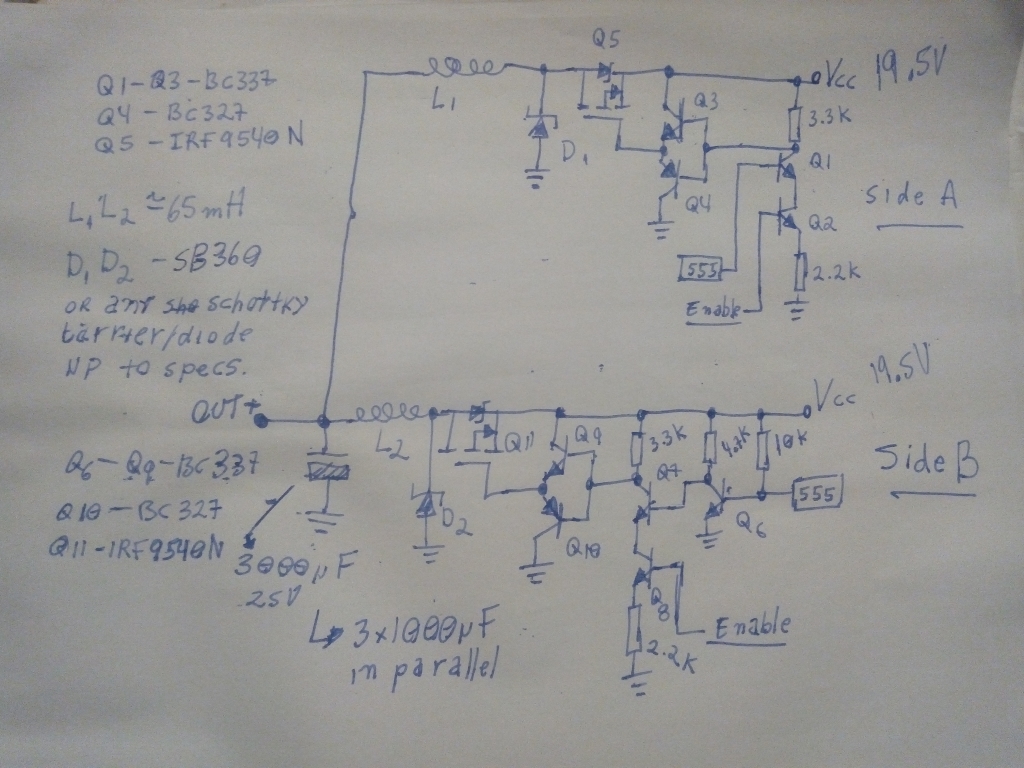 Q5
Q1-Q3-BC337
Q4 - BC327
Q5 - IRF9540N
L1
Vcc 19,5V
Q3
3.3K
D1
Q1
Q4
Side A
Q2
L1 L2 ≈65mH
555
2.2K
D1 D2 - SB360
Enable
or any schottky
barrier/diode
UP to specs.
OUT+
Vcc 19.5V
L2
Q11
Q9
3.3K
4.7K
10K
Side B
Q6 - Q9-BC337
Q7
555
Q10 - BC327
D2
Q6
Q11-IRF9540N
Q10
3000µF
25V
Q8
3x1000µF
Enable
in parallel
2.2K